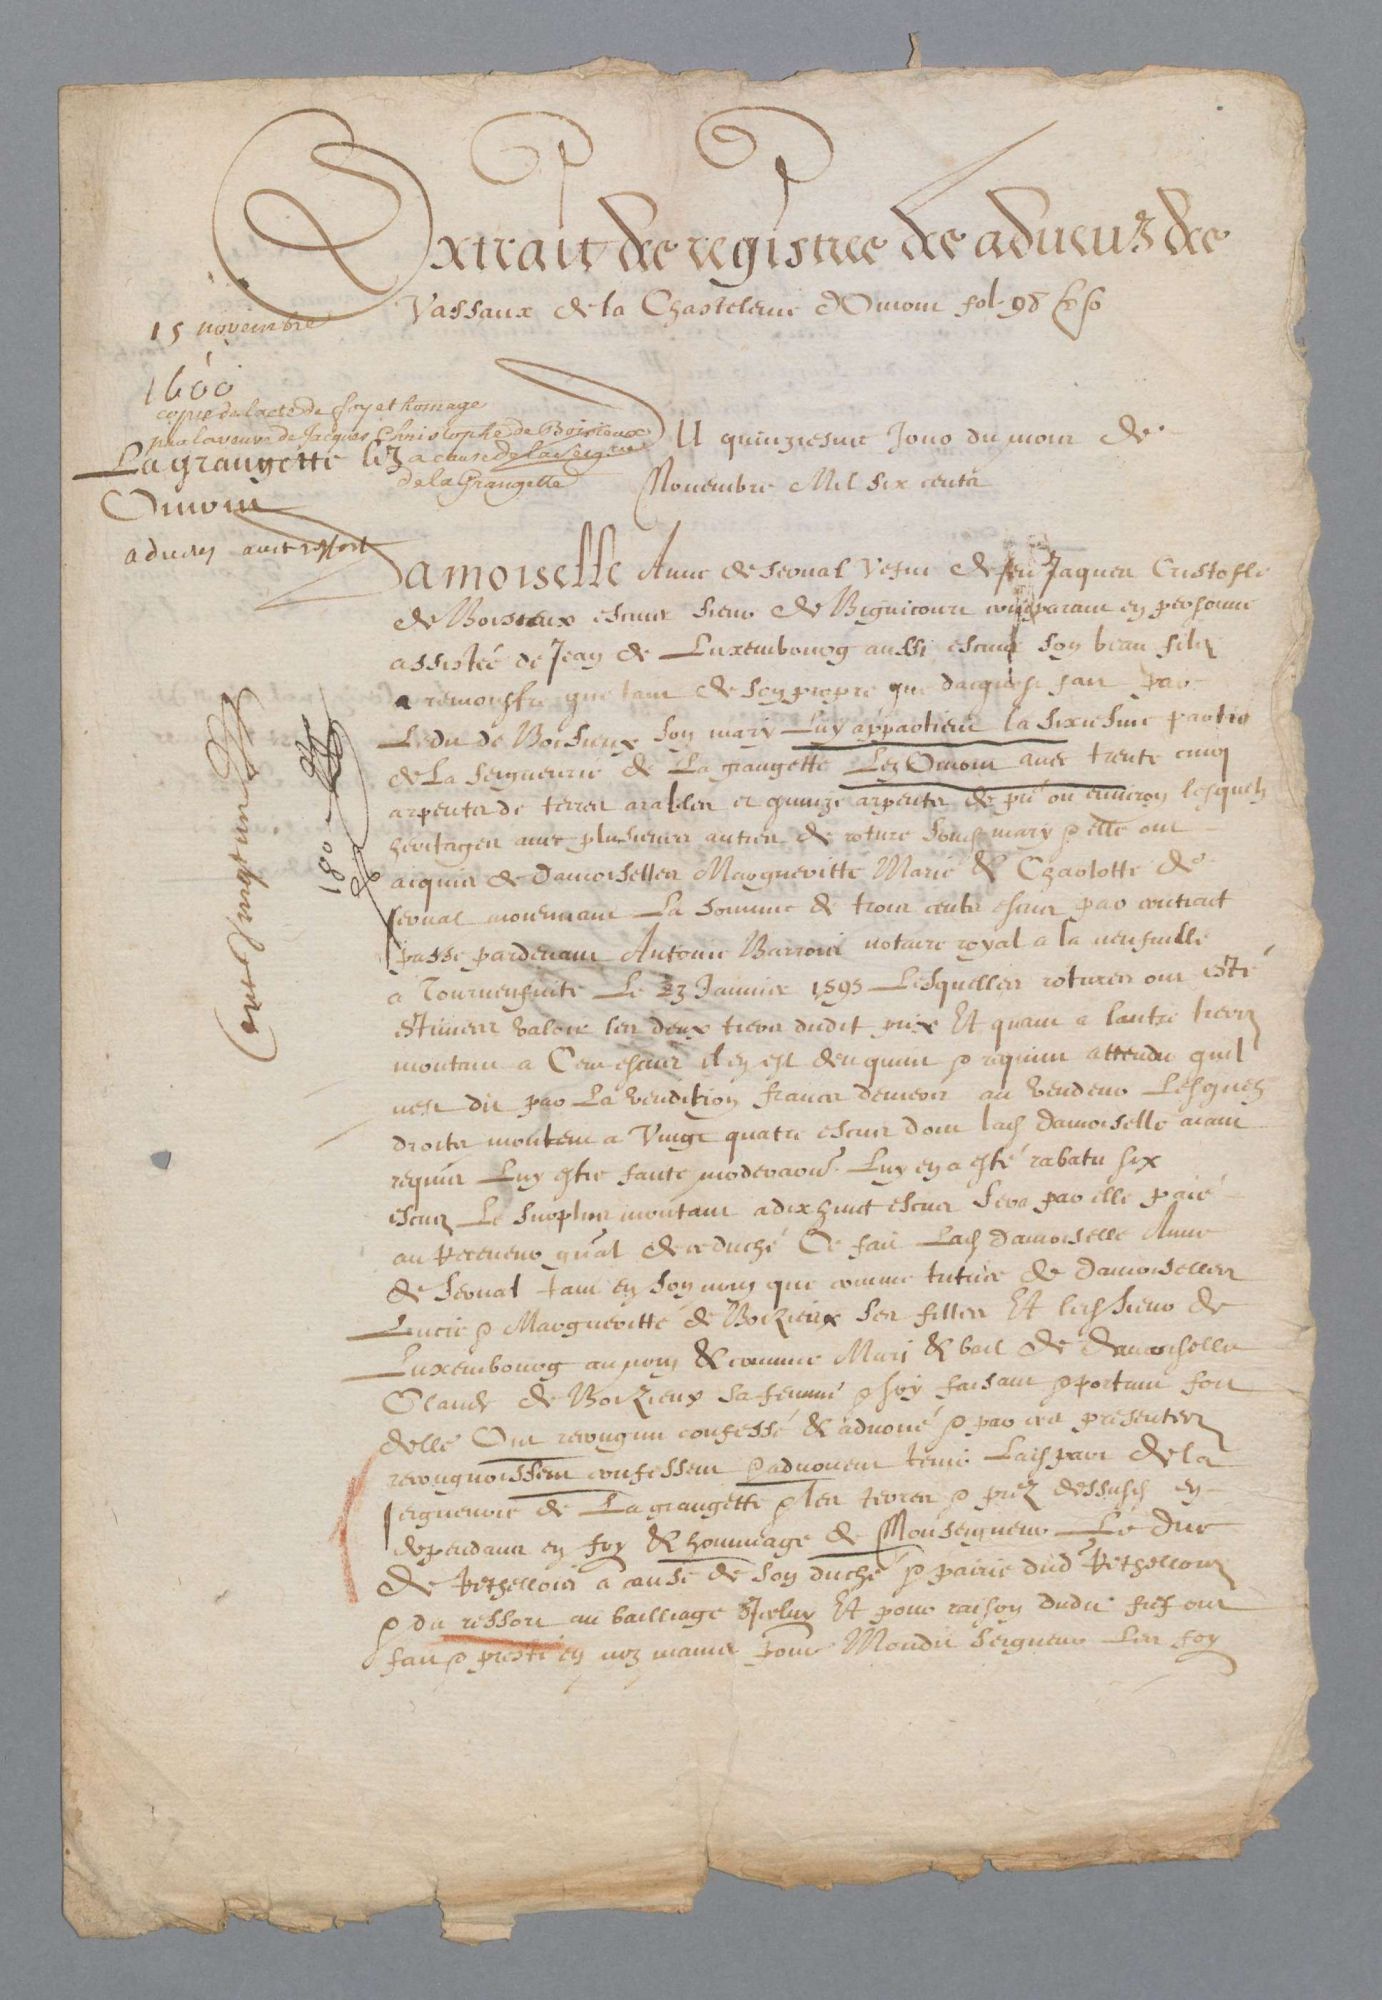 Extrait de registre de adveuz de
Vassaux de la Chastelenie d'Omont fol. 98 
15 novembre
1600
copie de lacte de foy et homage
par la veuve de Jacques Christophe de Boizieux
a cause de la Seigrie
de la Grangette
La grangette lez
Omont
adveu au ressort
DU quinziesme Jour du mois de
Novembre Mil six cents
Damoiselle Anne de Seoual vefue de feu Jaques Cristofle
de Boisieux escuier Sieur de Bignicourt comparant en personne
assistée de Jean de Luxembourg aussi escuier son beau filz
a remonstré que tant de son propre que dacquest fait par
Ledit de Boisieux son mary Luy appartient la sixiesme partie
de La Seigneurie de La grangette Lez Omont avec trente cinq
arpents de terres arables et quinze arpents de pré ou environ lesquels
heritages avec plusieurs autres de roture sondit mary & elle ont
acquis de damoiselles Margueritte Marie & Charlotte de
Seoual moiennant La somme de trois cents escus par contract
passé pardevant Antoine Barrois notaire royal a la neufuille
a Tourneufuite Le 23 Januier 1595 Lesquelles rotures ont esté
estimees valoir les deux tiers dudit prix Et quant a lautre tiers
montant a Cent escus il en est deu quint & requint attendu quil
nest dit par La vendition francs deniers au vendeur Lesquelz
droits montent a Vingt quatre escus dont ladite damoiselle aiant
requis Luy estre faicte moderaon Luy en a esté rabatu six
escus Le surplus montant a dix huict escus sera par elle paié
au Receveur gnal de ce duché Ce fait Ladite damoiselle Anne
de Seoual tant en son nom que comme tutrice de damoiselles
Lucie & Margueritte de Boizieux ses filles Et ledit sieur de
Luxembourg au nom & comme Mari & bail de damoiselle
Claude de Boizieux sa femme & soy faisant & portant fort
delle Ont recongnu confessé & advoué & par ces presentes
recongnoissent confessent & advouent tenir Ladite part de la
seigneurie de La grangette & les terres & prez dessusdits en
dependans en foy & hommage de Monseigneur Le Duc
de Rethellois a cause de son duché & pairie dudit Rethellois
& du ressort au bailliage dicelux Et pour raison dudit fief ont
fait & presté en noz mains pour Mondit Seigneur Les foy